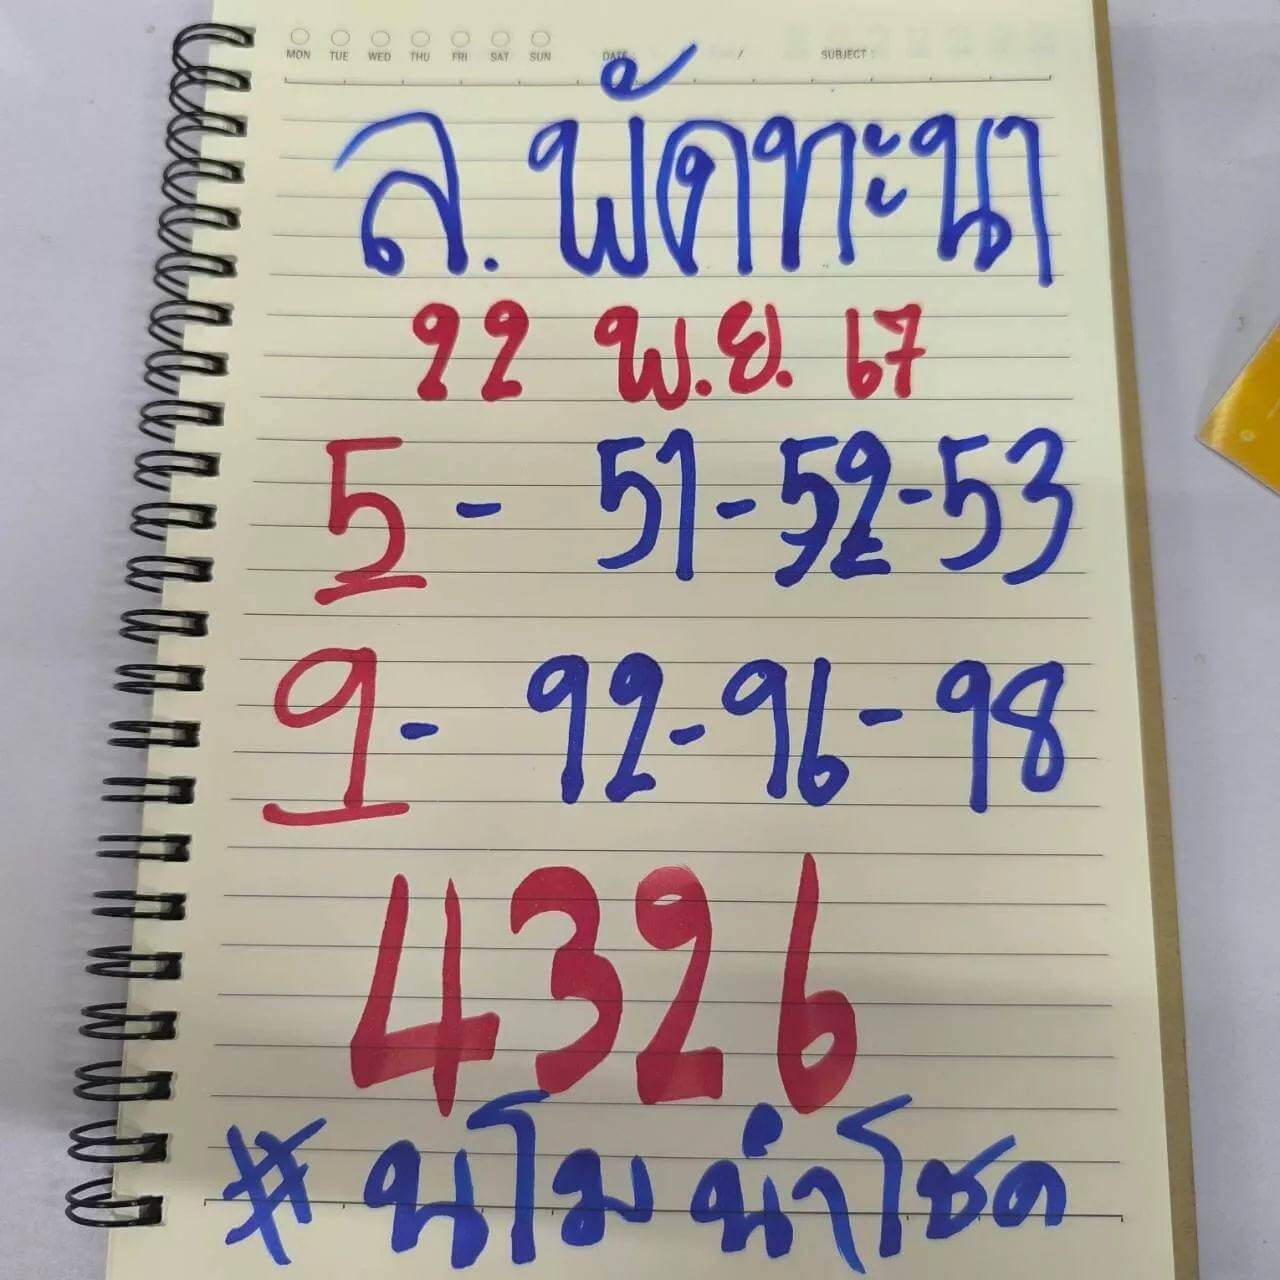 MON TUE WED THU FRI SAT SUN DATE: / SUBJECT :
ล. พัดทะนา
22 พ.ย. 67
5 - 51-52-53
9 - 92-96-98
4326
# นโม นำโชค